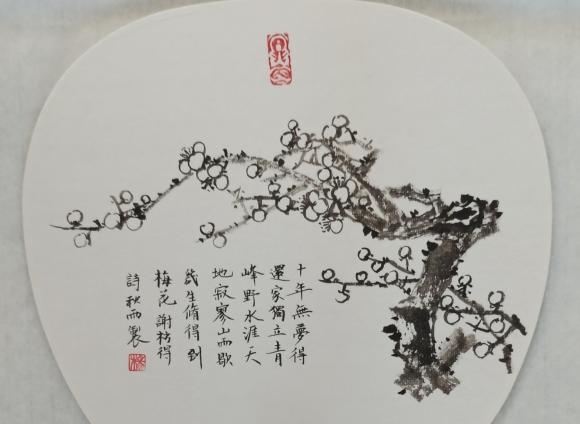 十年無夢得
還家獨立青
峰野水涯天
地寂寥山雨歇
幾生脩得到
梅花 謝枋得
詩 秋雨製